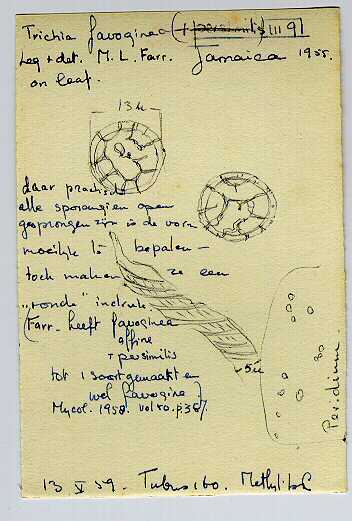 Trichia favoginea (+ persimilis) III 91
Leg + det. M. L. Farr. Jamaica 1955.
on leaf.
13 μ
daar practisch
alle sporangien open
gesprongen zijn is de vorm
moeilijk te bepalen –
toch maken ze een
"ronde" indruk.
(Farr. heeft favoginea
affine
+ persimilis
tot 1 soort gemaakt en
wel favogine.)
Mycol. 1958. vol 50. p 367.
5 μ
Peridium.
13 V 59. Tubus 160.